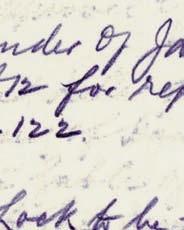 of Ja
12 for rep
.122.
Lock to be